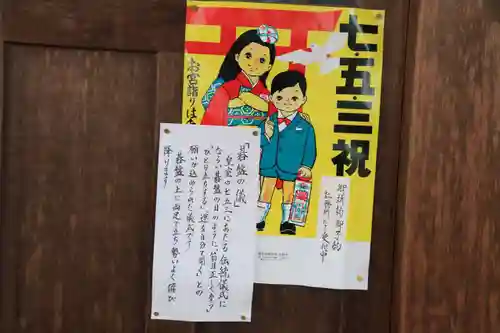 七・五・三祝
お宮詣りは
「碁盤の儀」
皇室の七五三にあたる伝統儀式に
ならい碁盤の目のように、「筋目正しく育つ」
「ひとり立ちする」「運を自分で開く」との
願いが込められた儀式です
碁盤の上に両足で立ち勢いよく飛び
降ります
御祈祷御予約
社務所にて受付中